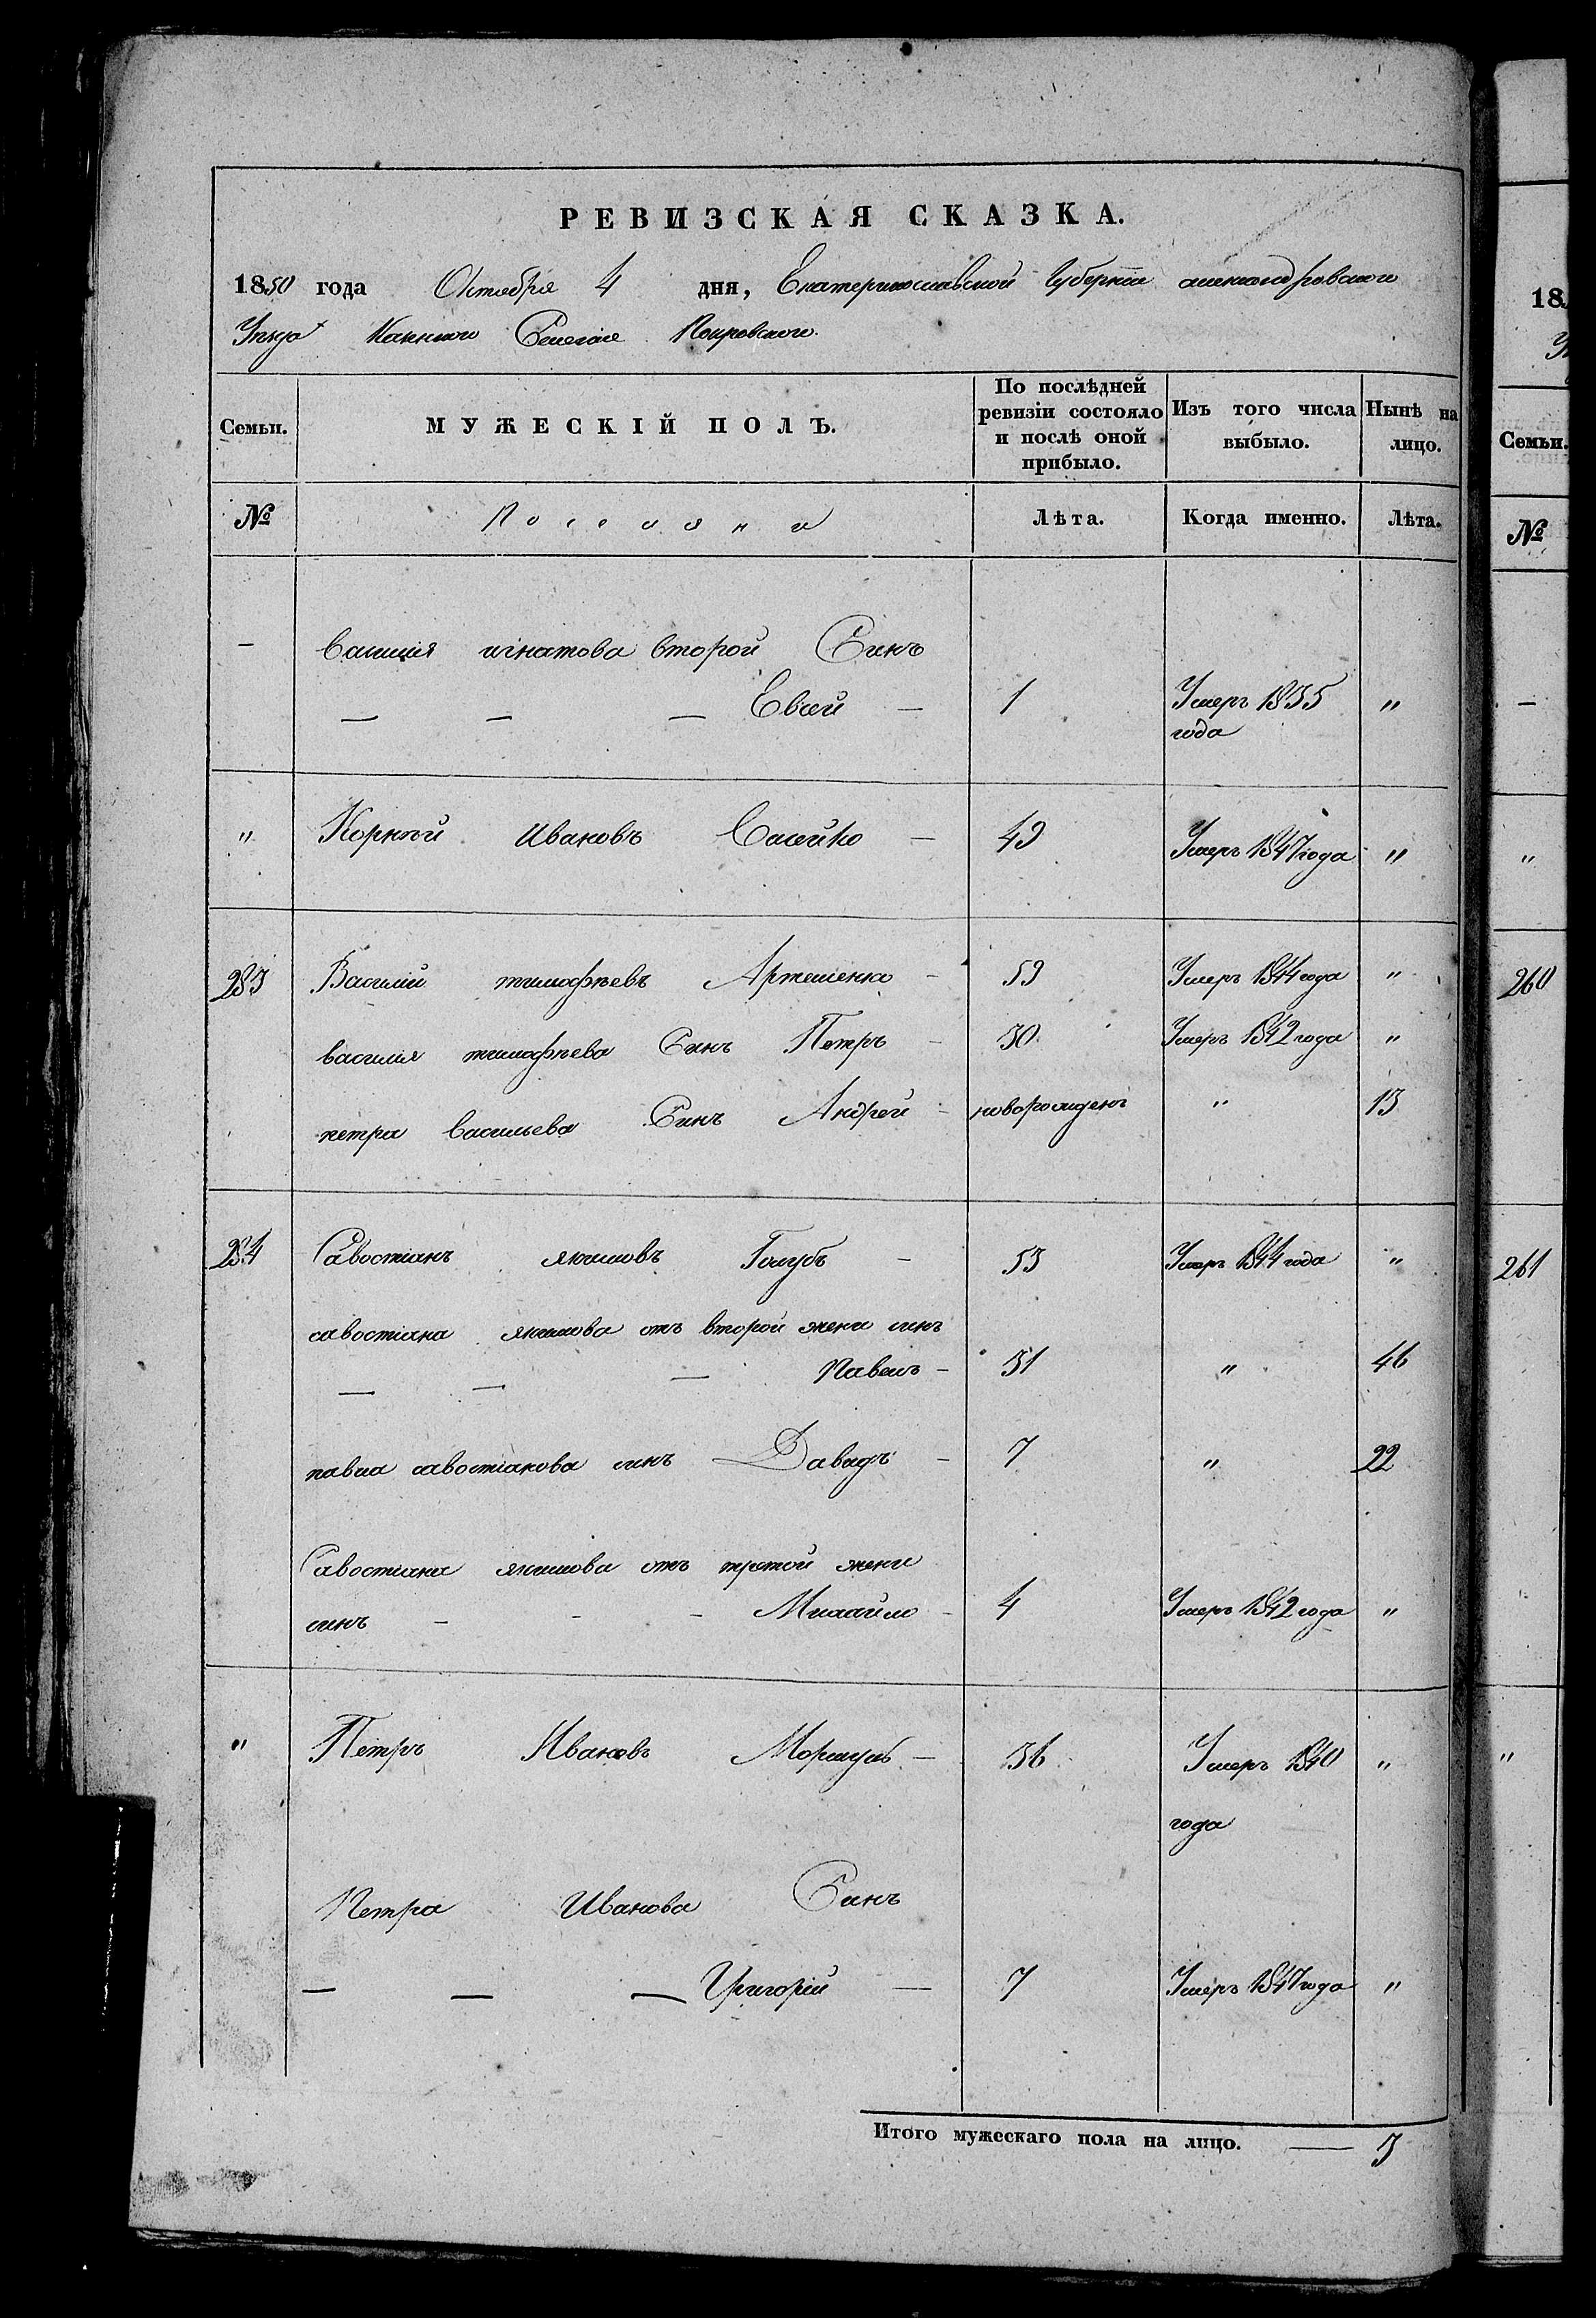 РЕВИЗСКАЯ СКАЗКА.
1850 года Октября 4 дня, Екатеринославской Губерніи александровского
Уезда Казенного Селенія Покровского.
Семьи. МУЖЕСКІЙ ПОЛЪ. По послѣдней ревизіи состояло и послѣ оной прибыло. Изъ того числа выбыло. Нынѣ на лицо.
№ Поселяни Лѣта. Когда именно. Лѣта.
— василія игнатова второй Синъ
— — — Евсей — 1 Умеръ 1835 года "
" Корнѣй Ивановъ — 49 Умеръ 1847 года "
253 Василий тимофѣевъ Артеменко — 59 Умеръ 1844 года "
василия тимофѣева Синъ Петръ — 30 Умеръ 1842 года "
петра васильева Синъ Андрей — новорожденъ " 13
254 Савостіянъ якимовъ Голубъ — 53 Умеръ 1844 года "
савостіяна якимова отъ второй жени синъ
— — — Павелъ — 31 " 46
павла савостіянова синъ Давидъ — 7 " 22
Савостияна якимова отъ третой жени
синъ - - - Михайло — 4 Умеръ 1842 года "
" Петръ Ивановъ — 56 Умеръ 1840 года "
Петра Иванова Синъ
— — — Григорій — 7 Умеръ 1847 года "
Итого мужескаго пола на лицо. — 3
18
Семьи.
№
—
"
260
261
"